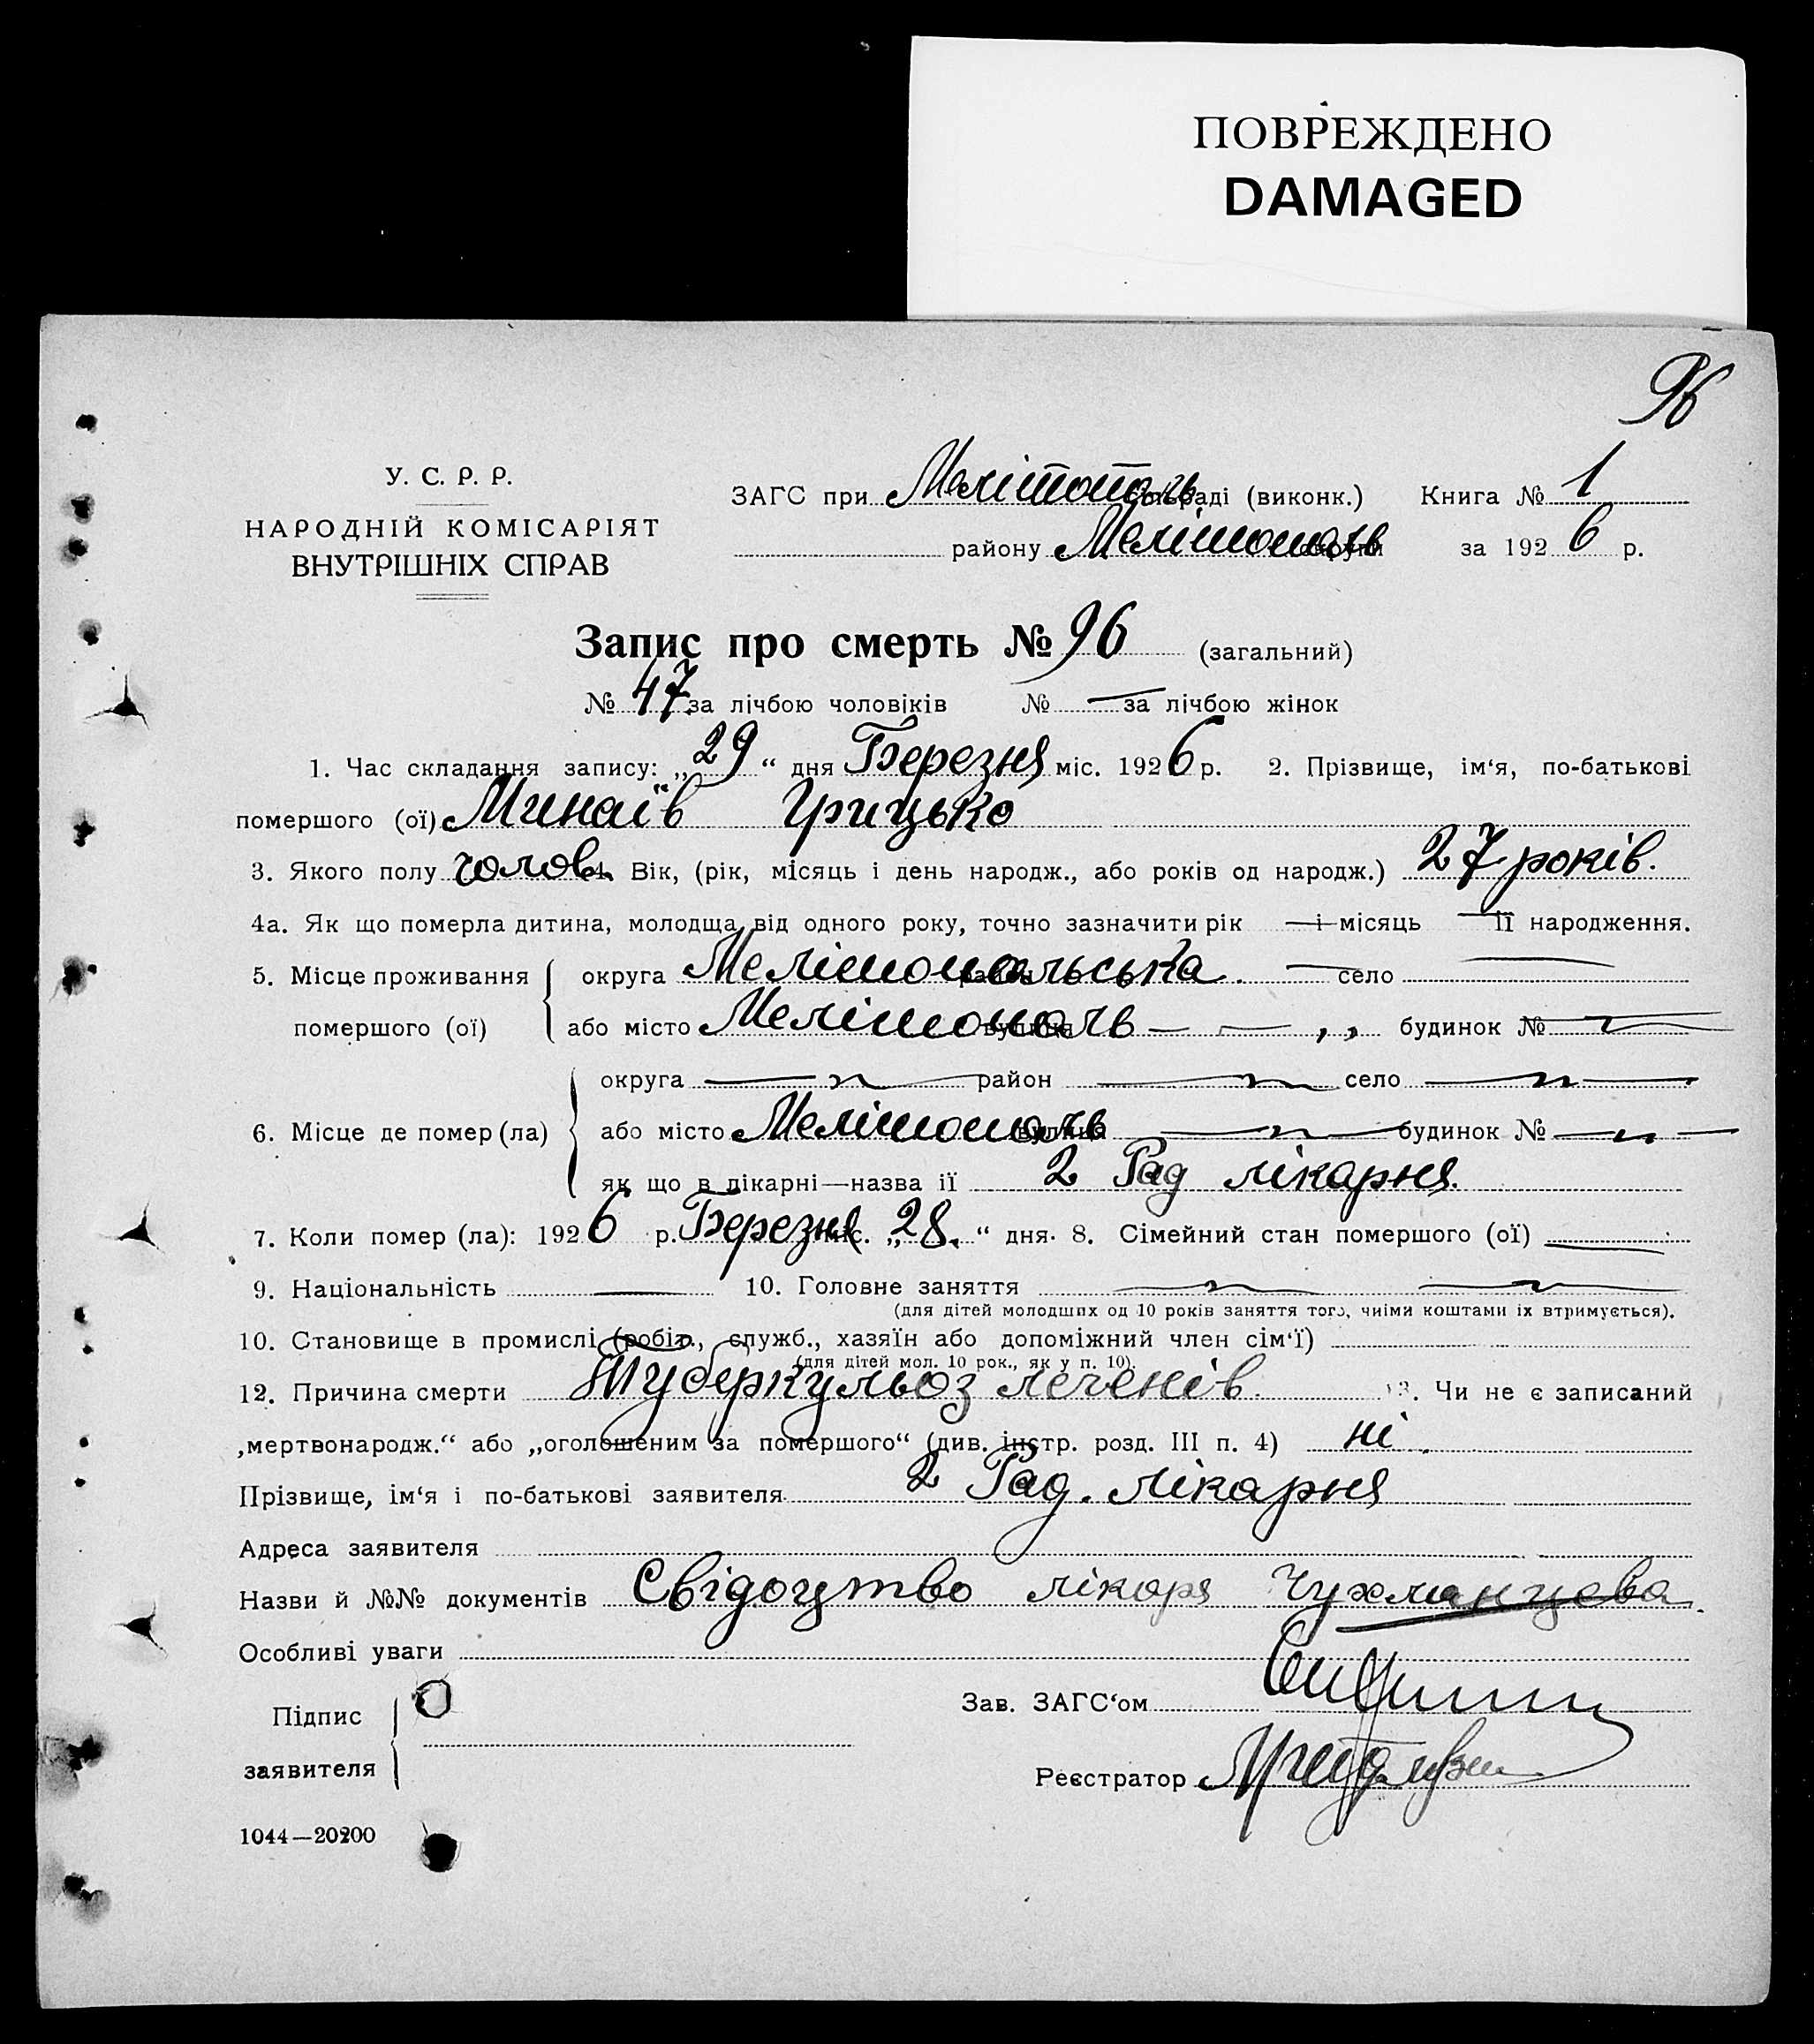 ПОВРЕЖДЕНО
DAMAGED
96
У. С. Р. Р.
НАРОДНІЙ КОМІСАРІЯТ
ВНУТРІШНІХ СПРАВ
ЗАГС при Мелітополь міськраді (виконк.) Книга № 1
району Мелітополь округи за 1926 р.
Запис про смерть № 96 (загальний)
№ 47 за лічбою чоловіків № — за лічбою жінок
1. Час складання запису: „29“ дня Березня міс. 1926 р. 2. Прізвище, ім‘я, по-батькові
помершого (ої) Минаїв Грицько
3. Якого полу чолов. 4. Вік, (рік, місяць і день народж., або років од народж.) 27 років.
4а. Як що померла дитина, молодща від одного року, точно зазначити рік — і місяць — її народження.
5. Місце проживання округа Мелітопольська район — село —
помершого (ої) або місто Мелітополь вулиця — — „ будинок № —
округа — „ — район — „ — село — „ —
6. Місце де помер (ла) або місто Мелітополь вулиця — „ — будинок № — „ —
як що в лікарні—назва ії 2 Рад лікарня.
7. Коли помер (ла): 1926 р. Березня міс. „28.“ дня. 8. Сімейний стан помершого (ої) —
9. Національність — 10. Головне заняття — „ — — „ —
(для дітей молодших од 10 років заняття того, чиіми коштами іх втримується).
10. Становище в промислі (робіт., служб., хазяїн або допоміжний член сім‘ї)
(для дітей мол. 10 рок., як у п. 10).
12. Причина смерти Туберкульоз легенів. 13. Чи не є записаний
„мертвонародж.“ або „оголошеним за помершого“ (див. інстр. розд. III п. 4) ні.
Прізвище, ім‘я і по-батькові заявителя 2 Рад. лікарня
Адреса заявителя
Назви й №№ документів Свідоцтво лікаря Чухманцева.
Особливі уваги
Підпис
заявителя
Зав. ЗАГС‘ом
Реєстратор
1044—20200